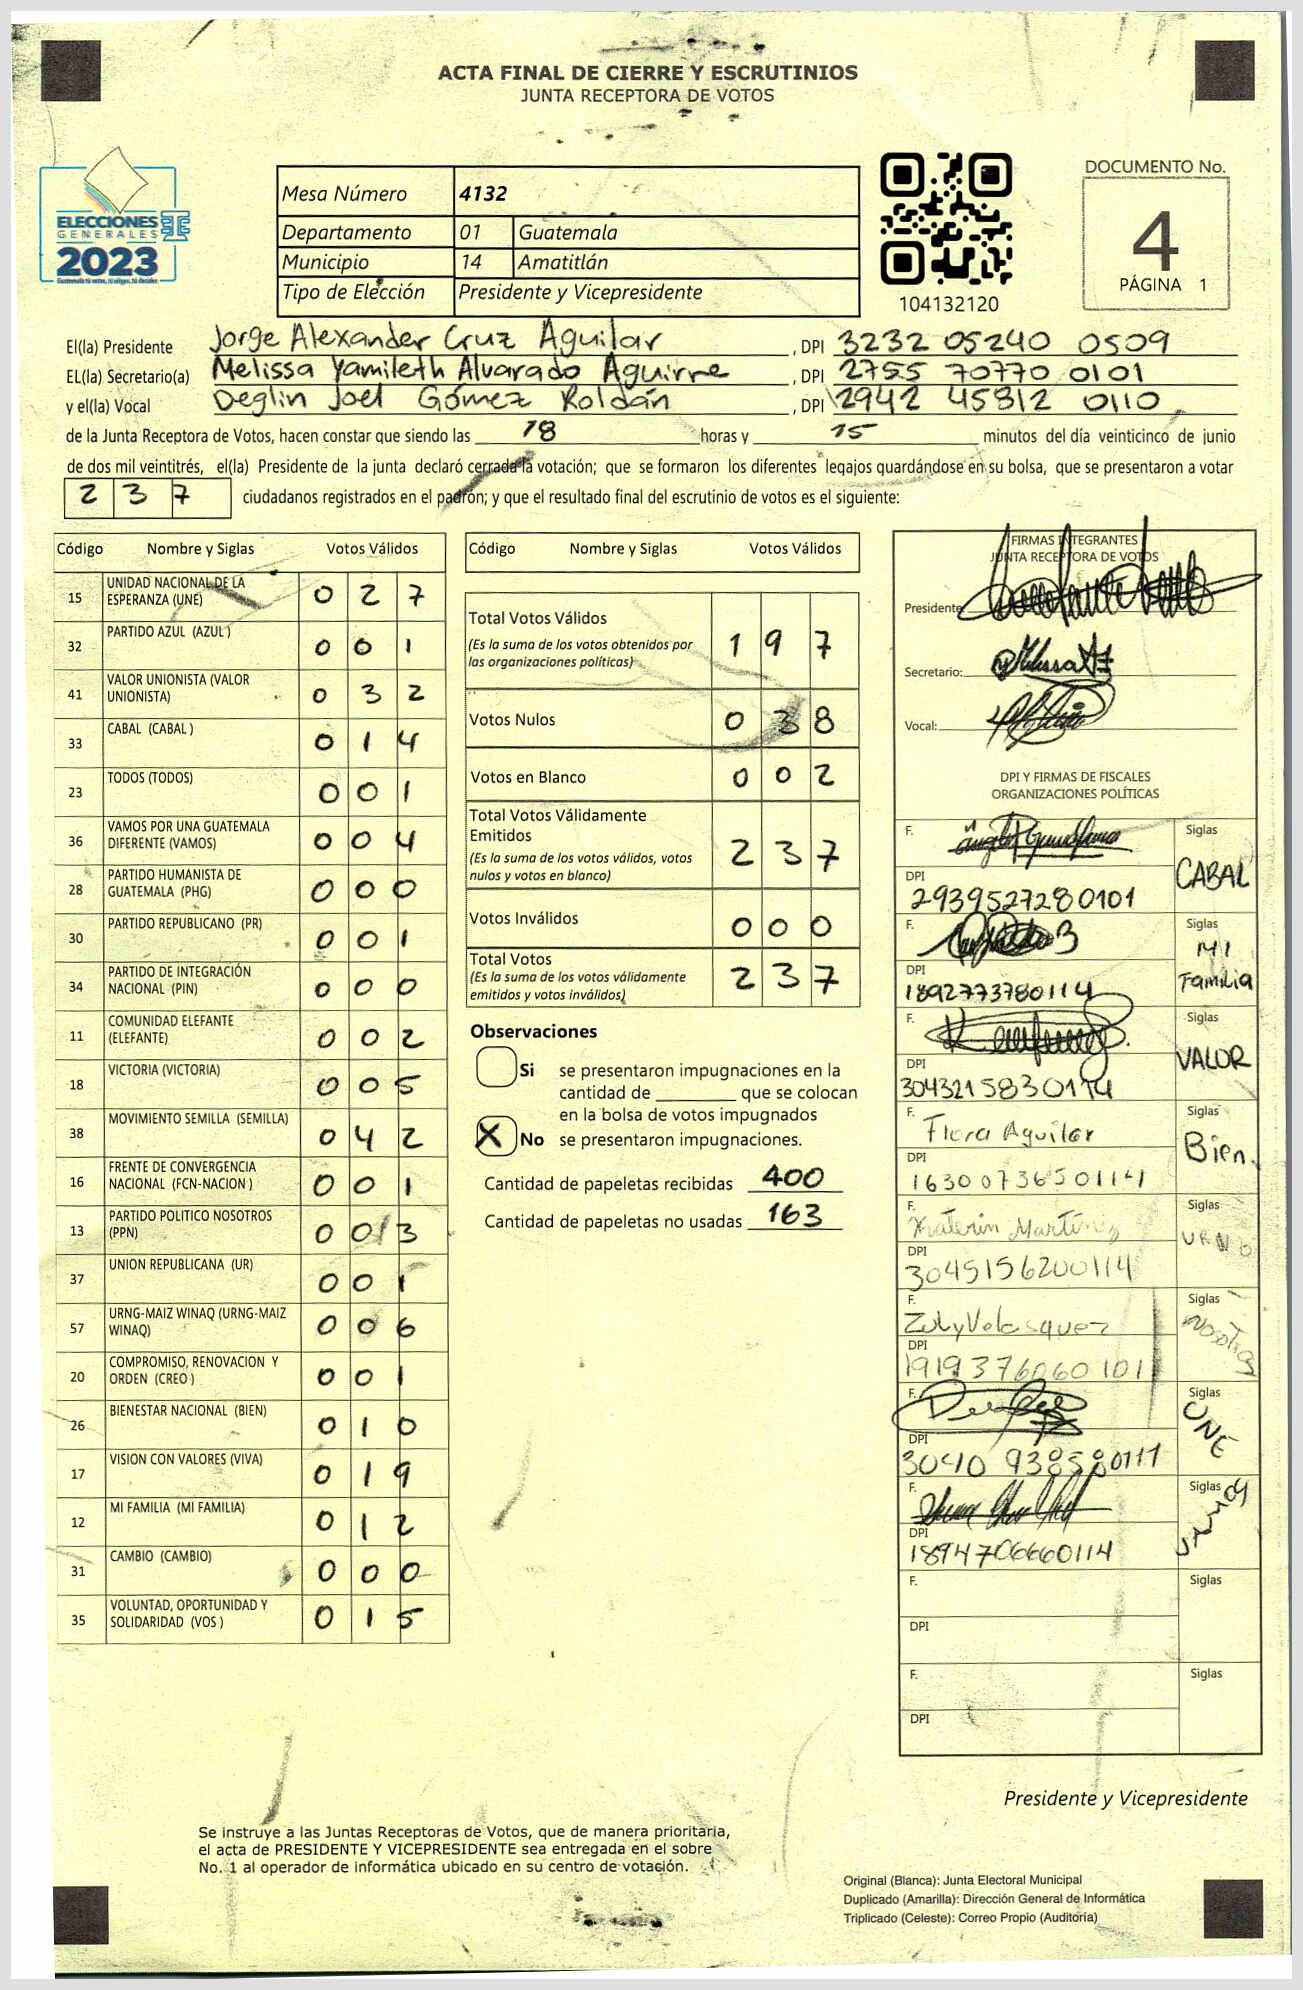 ACTA FINAL DE CIERRE Y ESCRUTINIOS
JUNTA RECEPTORA DE VOTOS
ELECCIONES
GENERALES
2023
Mesa Número 4132
Departamento 01 Guatemala
Municipio 14 Amatitlán
Tipo de Elección Presidente y Vicepresidente
104132120
DOCUMENTO No.
4
PÁGINA 1
El(la) Presidente Jorge Alexander Cruz Aguilar , DPI 3232 05240 0509
EL(la) Secretario(a) Melissa Yamileth Alvarado Aguirre , DPI 2755 70770 0101
y el(la) Vocal Deglin Joel Gómez Roldán , DPI 2942 45812 0110
de la Junta Receptora de Votos, hacen constar que siendo las 18 horas y 15 minutos del día veinticinco de junio
de dos mil veintitrés, el(la) Presidente de la junta declaró cerrada la votación; que se formaron los diferentes legajos quardándose en su bolsa, que se presentaron a votar
237 ciudadanos registrados en el padrón; y que el resultado final del escrutinio de votos es el siguiente:
Código Nombre y Siglas Votos Válidos
15 UNIDAD NACIONAL DE LA ESPERANZA (UNE) 027
32 PARTIDO AZUL (AZUL ) 001
41 VALOR UNIONISTA (VALOR UNIONISTA) 032
33 CABAL (CABAL ) 014
23 TODOS (TODOS) 001
36 VAMOS POR UNA GUATEMALA DIFERENTE (VAMOS) 004
28 PARTIDO HUMANISTA DE GUATEMALA (PHG) 000
30 PARTIDO REPUBLICANO (PR) 001
34 PARTIDO DE INTEGRACIÓN NACIONAL (PIN) 000
11 COMUNIDAD ELEFANTE (ELEFANTE) 002
18 VICTORIA (VICTORIA) 005
38 MOVIMIENTO SEMILLA (SEMILLA) 042
16 FRENTE DE CONVERGENCIA NACIONAL (FCN-NACION ) 001
13 PARTIDO POLITICO NOSOTROS (PPN) 003
37 UNION REPUBLICANA (UR) 001
57 URNG-MAIZ WINAQ (URNG-MAIZ WINAQ) 006
20 COMPROMISO, RENOVACION Y ORDEN (CREO ) 001
26 BIENESTAR NACIONAL (BIEN) 010
17 VISION CON VALORES (VIVA) 019
12 MI FAMILIA (MI FAMILIA) 012
31 CAMBIO (CAMBIO) 000
35 VOLUNTAD, OPORTUNIDAD Y SOLIDARIDAD (VOS ) 015
Código Nombre y Siglas Votos Válidos
Total Votos Válidos 197
(Es la suma de los votos obtenidos por
las organizaciones políticas)
Votos Nulos 038
Votos en Blanco 002
Total Votos Válidamente
Emitidos 237
(Es la suma de los votos válidos, votos
nulos y votos en blanco)
Votos Inválidos 000
Total Votos 237
(Es la suma de los votos válidamente
emitidos y votos inválidos)
Observaciones
Si se presentaron impugnaciones en la
cantidad de ________ que se colocan
en la bolsa de votos impugnados
X No se presentaron impugnaciones.
Cantidad de papeletas recibidas 400
Cantidad de papeletas no usadas 163
FIRMAS INTEGRANTES
JUNTA RECEPTORA DE VOTOS
Presidente:
Secretario:
Vocal:
DPI Y FIRMAS DE FISCALES
ORGANIZACIONES POLÍTICAS
F. Siglas CABAL
DPI 2939527280101
F. Siglas MI Familia
DPI 1892773780114
F. Siglas VALOR
DPI 3043215830114
F. Flora Aguilar Siglas Bien.
DPI 1630073650114
F. Katerin Martínez Siglas
DPI 3045156200114
F. Zuly Velasquez Siglas Nosotros
DPI 1919376060101
F. Siglas UNE
DPI 3040
F. Siglas
DPI 1894706660114
F. Siglas
DPI
F. Siglas
DPI
Presidente y Vicepresidente
Se instruye a las Juntas Receptoras de Votos, que de manera prioritaria,
el acta de PRESIDENTE Y VICEPRESIDENTE sea entregada en el sobre
No. 1 al operador de informática ubicado en su centro de votación.
Original (Blanca): Junta Electoral Municipal
Duplicado (Amarilla): Dirección General de Informática
Triplicado (Celeste): Correo Propio (Auditoría)